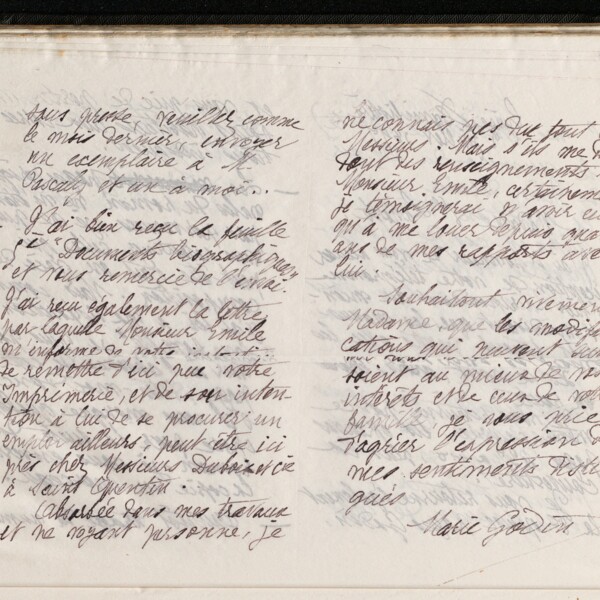 sous presse, veuillez comme
le mois dernier, envoyer
un exemplaire à M.
Pascaly et un à moi.
J'ai bien reçu la feuille
5e Documents biographiques
et vous remercie de l'envoi.
J'ai reçu également la lettre
par laquelle Monsieur Emile
m'informe de votre intention
de remettre d'ici peu votre
Imprimerie, et de son inten
tion à lui de se procurer un
emploi ailleurs, peut être ici
près chez Messieurs Dubois et Cie
à Saint Quentin.
Absorbée dans mes travaux
et ne voyant personne, je
ne connais pas du tout
Messieurs. Mais s'ils me
des renseignements
Monsieur Emile, certainement
je témoignerai n'avoir eu
qu'à me louer depuis
ans de mes rapports avec
lui.
Souhaitant vivement
Madame, que les modifi
cations qui peuvent
soient au mieux de vos
intérêts et de ceux de votre
famille je vous prie
d'agréer l'expression de
mes sentiments distin
gués
Marie Godin